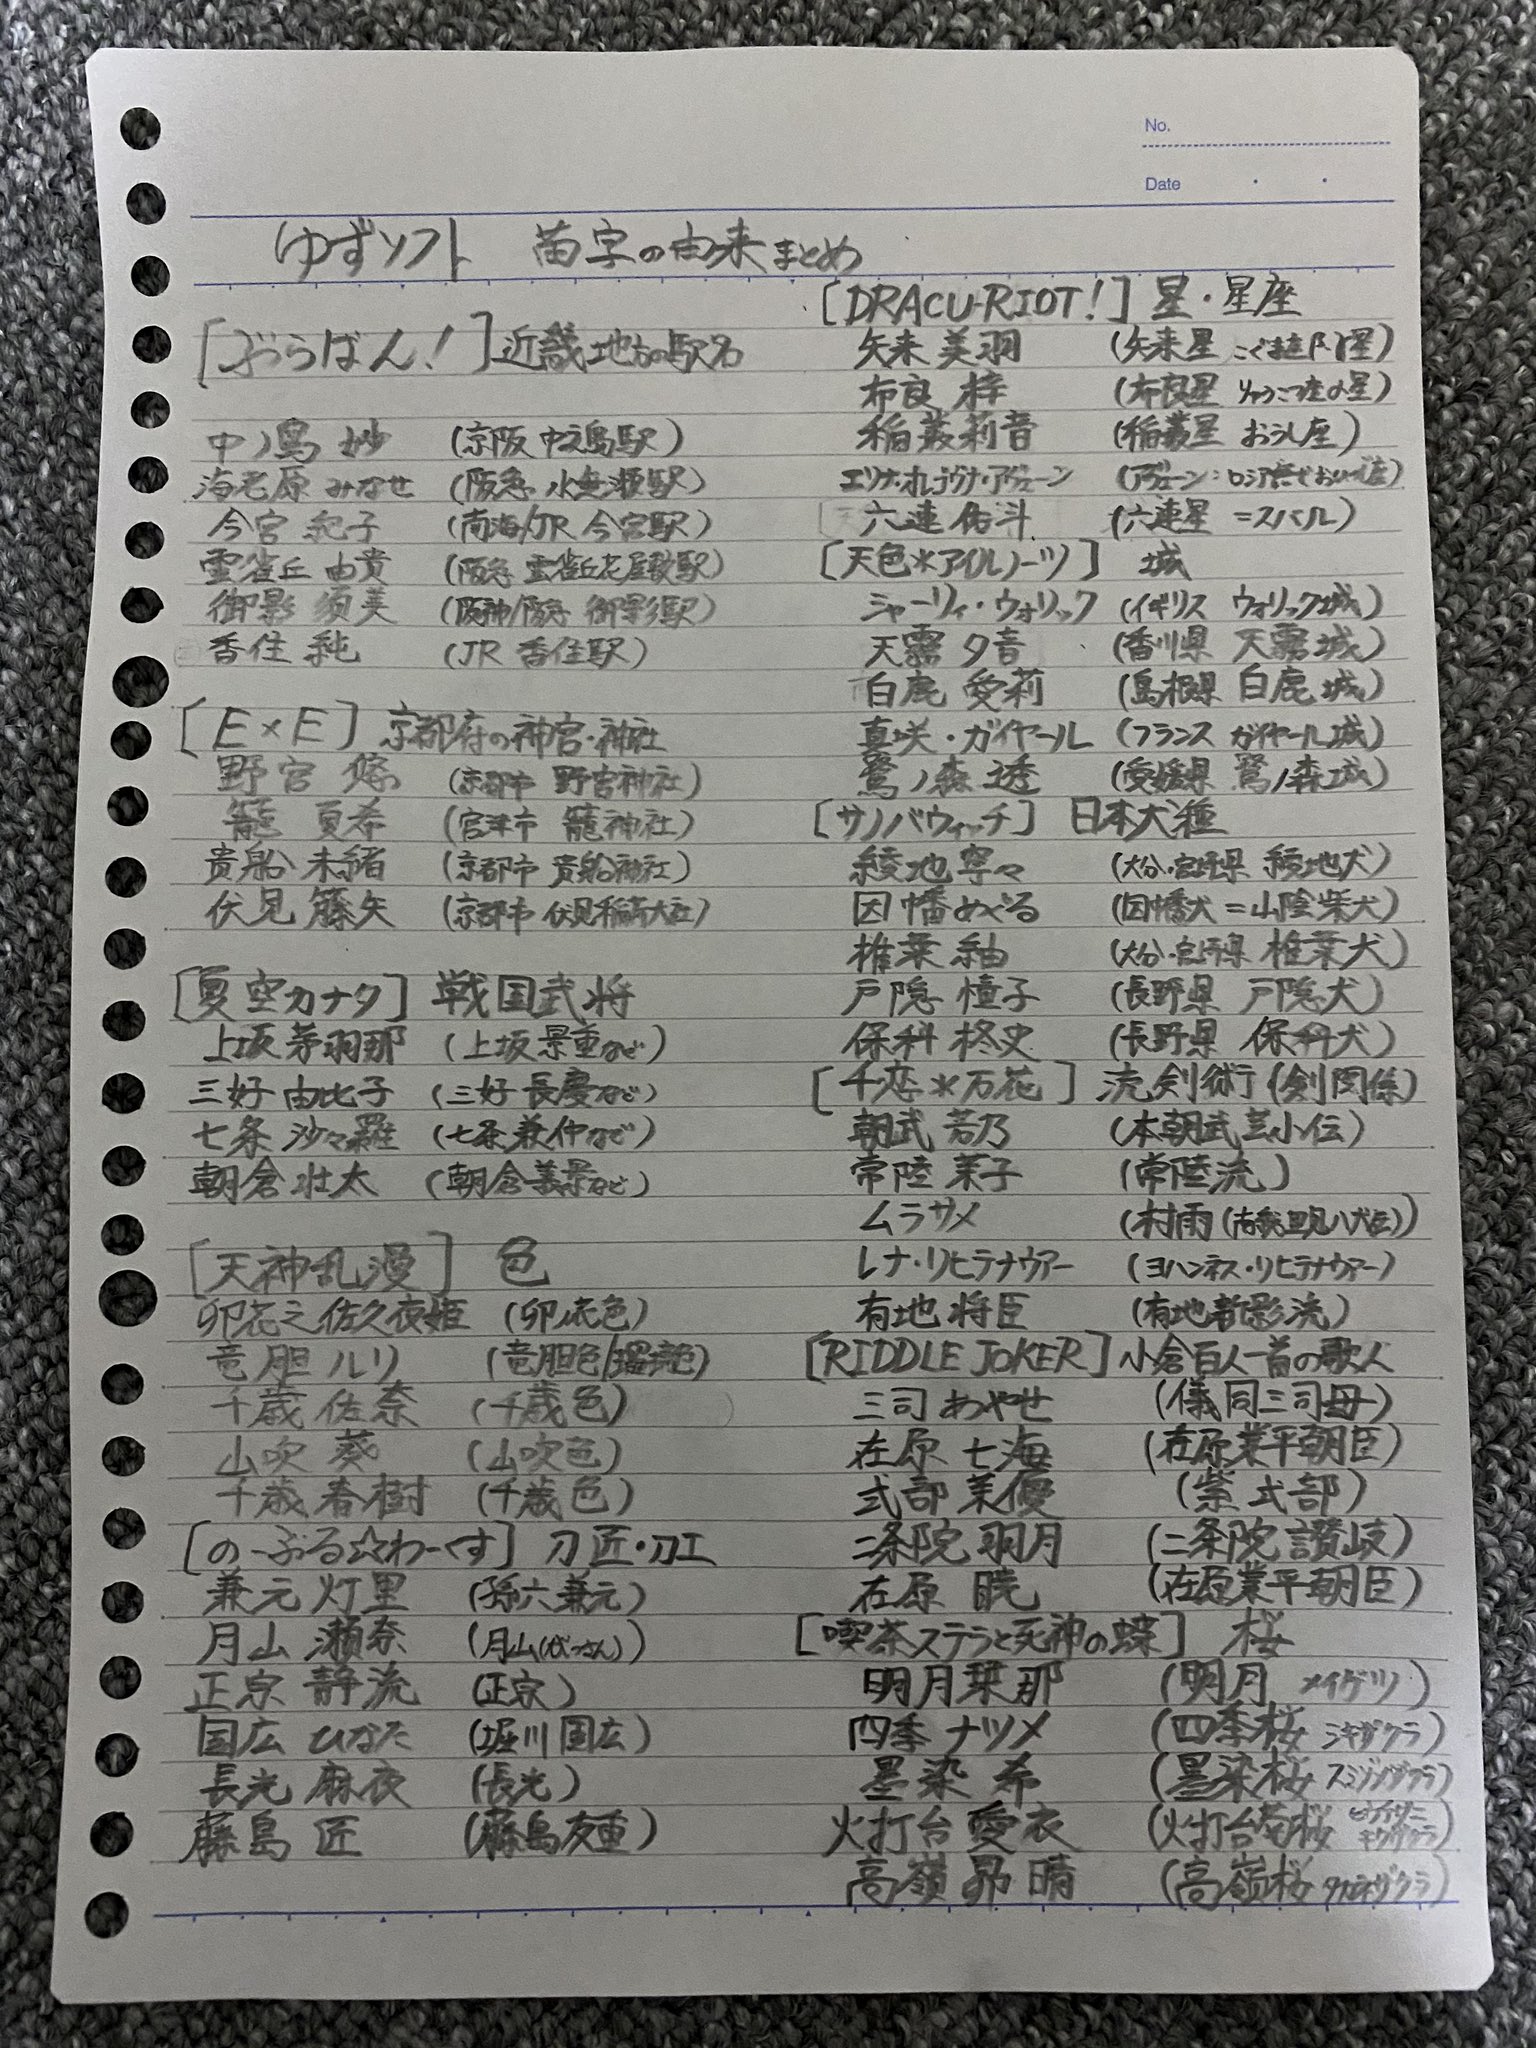 No.
Date
ゆずソフト 苗字の由来まとめ
[ぶらばん!]近畿地方の駅名
中ノ島 妙 (京阪 中之島駅)
海老原 みなせ (阪急 水無瀬駅)
今宮 紀子 (南海/JR 今宮駅)
雲雀丘 由貴 (阪急 雲雀丘花屋敷駅)
御影 須美 (阪神/阪急 御影駅)
香住 純 (JR 香住駅)
[E×E] 京都府の神宮・神社
野宮 悠 (京都市 野宮神社)
籠 夏希 (宮津市 籠神社)
貴船 未緒 (京都市 貴船神社)
伏見 籐矢 (京都市 伏見稲荷大社)
[夏空カナタ] 戦国武将
上坂 茅羽那 (上坂 景重など)
三好 由比子 (三好 長慶など)
七条 沙々羅 (七条 兼仲など)
朝倉 壮太 (朝倉 義景など)
[天神乱漫] 色
卯花之佐久夜姫 (卯の花色)
竜胆 ルリ (竜胆色/瑠璃色)
千歳 佐奈 (千歳色)
山吹 葵 (山吹色)
千歳 春樹 (千歳色)
[のーぶる☆わーくす] 刀匠・刀工
兼元 灯里 (孫六兼元)
月山 瀬奈 (月山(がっさん))
正宗 静流 (正宗)
国広 ひなた (堀川 国広)
長光 麻夜 (長光)
藤島 匠 (藤島友重)
[DRACU-RIOT!] 星・星座
矢来 美羽 (矢来星 こぐま座β星)
布良 梓 (布良星 りゅうこつ座α星)
稲叢莉音 (稲叢星 おうし座)
エリナ・オレゴヴナ・アヴェーン (アヴェーン:ロシア語でおひつじ座)
六連 佑斗 (六連星 =スバル)
[天色*アイルノーツ] 城
シャーリィ・ウォリック (イギリス ウォリック城)
天霧 夕音 (香川県 天霧城)
白鹿 愛莉 (島根県 白鹿城)
真咲・ガイヤール (フランス ガイヤール城)
鷺ノ森 透 (愛媛県 鷺ノ森城)
[サノバウィッチ] 日本犬種
綾地 寧々 (大分・宮崎県 綾地犬)
因幡 めぐる (因幡犬 =山陰柴犬)
椎葉 紬 (大分・宮崎県 椎葉犬)
戸隠 憧子 (長野県 戸隠犬)
保科 柊史 (長野県 保科犬)
[千恋*万花] 流剣術(剣関係)
朝武 芳乃 (本朝武芸小伝)
常陸 茉子 (常陸流)
ムラサメ (村雨(南総里見八犬伝))
レナ・リヒテナウアー (ヨハンネス・リヒテナウアー)
有地 将臣 (有地新影流)
[RIDDLE JOKER] 小倉百人一首の歌人
三司 あやせ (儀同三司母)
在原 七海 (在原業平朝臣)
式部 茉優 (紫式部)
二条院 羽月 (二条院 讃岐)
在原 暁 (在原業平朝臣)
[喫茶ステラと死神の蝶] 桜
明月栞那 (明月 メイゲツ)
四季 ナツメ (四季桜 シキザクラ)
墨染 希 (墨染桜 スミゾメザクラ)
火打台 愛衣 (火打台菊桜 ヒウチダニキクザクラ)
高嶺 昴晴 (高嶺桜 タカネザクラ)